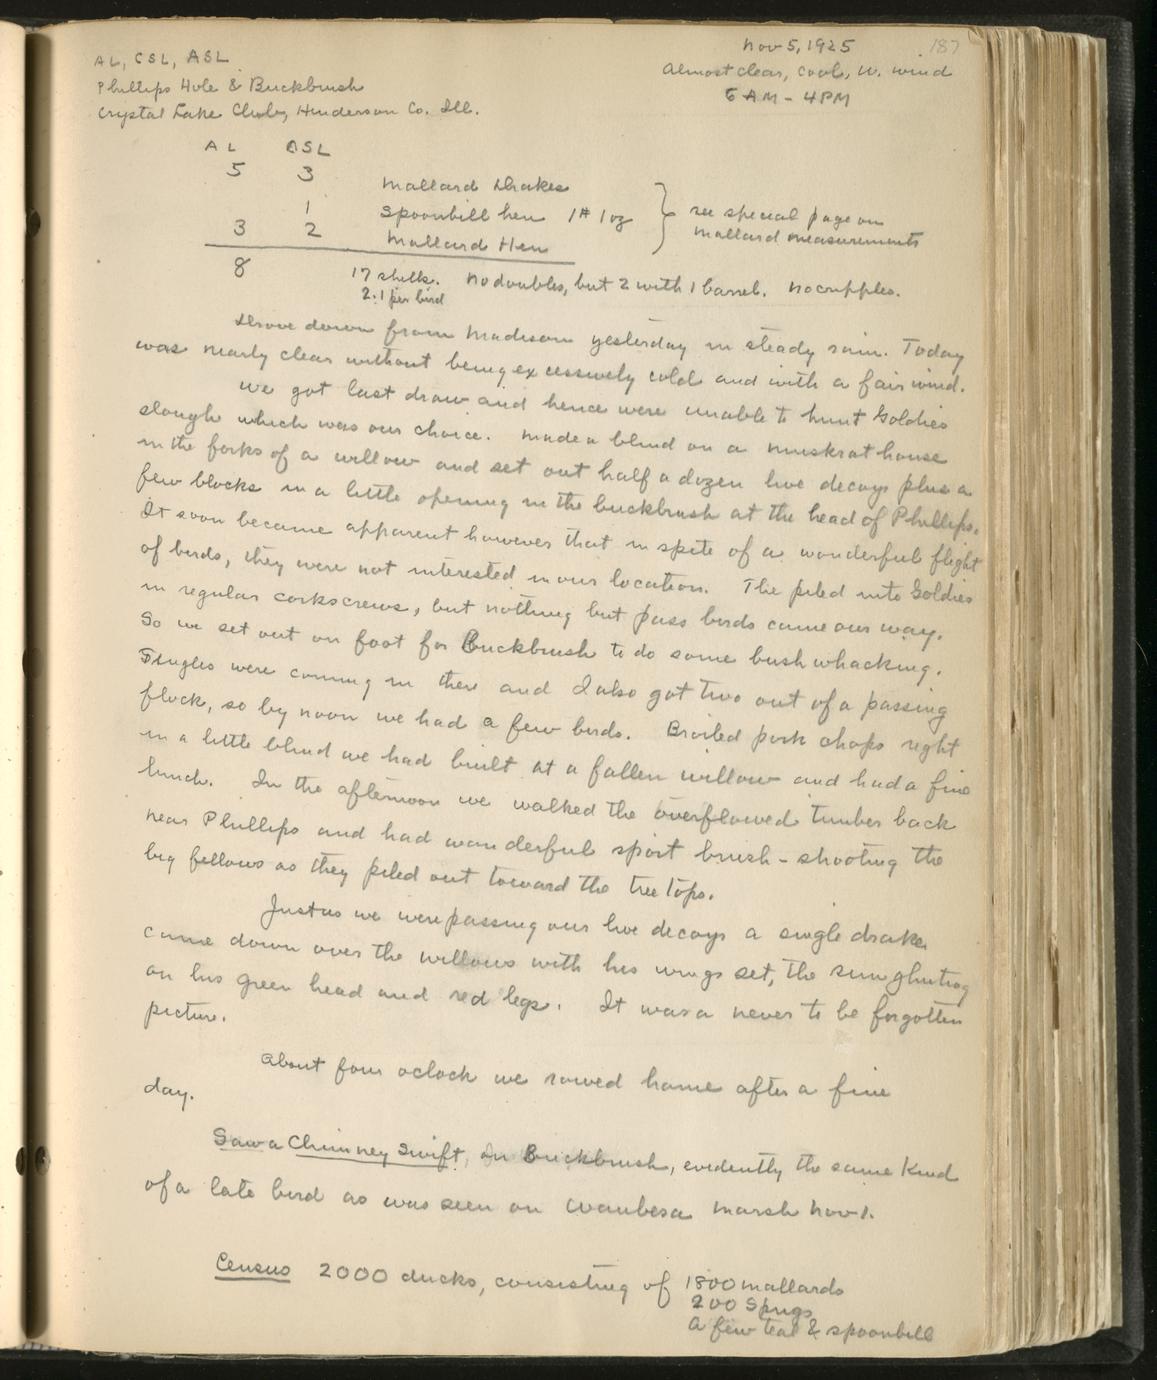 187
AL, CSL, ASL
Nov 5, 1925
Phillips Hole & Buckbrush
Almost clear, cool, W. wind
Crystal Lake Club, Henderson Co. Ill.
6 AM - 4 PM
AL ASL
5 3 Mallard Drakes
1 Spoonbill hen 1# 1 oz
3 2 Mallard Hen
} see special page on
mallard measurements
8 17 shells. No doubles, but 2 with 1 barrel. No cripples.
2.1 per bird
Drove down from Madison yesterday in steady rain. Today
was nearly clear without being excessively cold and with a fair wind.
We got last draw and hence were unable to hunt Goldies
slough which was our choice. Made a blind on a muskrat house
in the forks of a willow and set out half a dozen live decoys plus a
few blocks in a little opening in the buckbrush at the head of Phillips.
It soon became apparent however that in spite of a wonderful flight
of birds, they were not interested in our location. The piled into Goldies
in regular corkscrews, but nothing but pass birds came our way.
So we set out on foot for Buckbrush to do some bushwhacking.
Singles were coming in there and I also got two out of a passing
flock, so by noon we had a few birds. Broiled pork chops right
in a little blind we had built at a fallen willow and had a fine
lunch. In the afternoon we walked the overflowed timber back
near Phillips and had wonderful sport brush-shooting the
big fellows as they piled out toward the tree tops.
Just as we were passing our live decoys a single drake
came down over the willows with his wings set, the sun glinting
on his green head and red legs. It was a never to be forgotten
picture.
About four oclock we rowed home after a fine
day.
Saw a Chimney Swift, in Buckbrush, evidently the same kind
of a late bird as was seen on Waubesa Marsh Nov 1.
Census 2000 ducks, consisting of 1800 mallards
200 Sprigs
A few teal & spoonbill